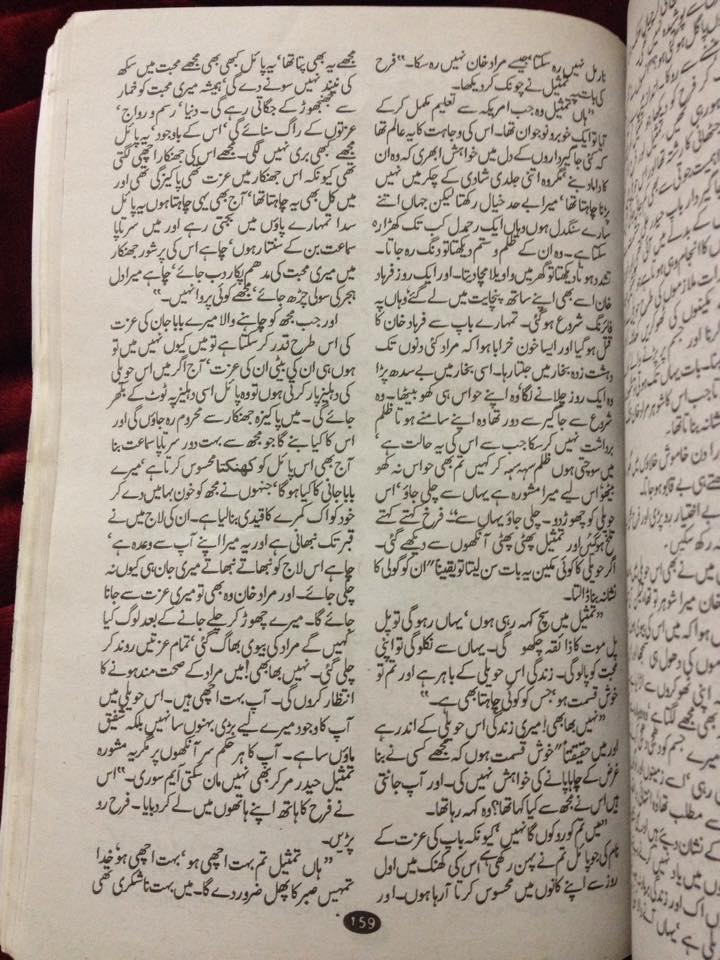 نارمل نہیں رہ سکتا‘ جیسے مراد خان نہیں رہ سکا۔“ فرح
کی بات پہ تمثیل نے چونک کر دیکھا۔
”ہاں تمثیل وہ جب امریکہ سے تعلیم مکمل کر کے
آیا تو ایک خوبرو نوجوان تھا۔ اس کی وجاہت کا یہ عالم تھا
کہ کئی جاگیرداروں کے دل میں خواہش ابھری کہ وہ ان
کا داماد بنے مگر وہ اتنی جلدی شادی کے چکر میں نہیں
پڑنا چاہتا تھا‘ میرا بے حد خیال رکھتا لیکن جہاں اتنے
سارے سنگدل ہوں وہاں ایک رحمدل کب تک کھڑا رہ
سکتا ہے۔ وہ ان کے ظلم و ستم دیکھتا تو دنگ رہ جاتا۔
تشدد ہوتا دیکھتا تو گھر میں واویلا مچا دیتا۔ اور ایک روز فرہاد
خان اسے بھی اپنے ساتھ پنچایت میں لے گئے‘ وہاں پہ
فائرنگ شروع ہو گئی۔ تمہارے باپ سے فرہاد خان کا
قتل ہو گیا اور ایسا خون خرابا ہوا کہ مراد کئی دنوں تک
دہشت زدہ بخار میں جلتا رہا۔ اسی بخار میں بے سدھ پڑا
وہ ایک روز چلانے لگا‘ وہ اپنے حواس ہی کھو بیٹھا۔ وہ
شروع سے جاگیر سے دور تھا وہ اپنے سامنے ہوتا ظلم
برداشت نہیں کر سکا جب سے اس کی یہ حالت ہے‘
میں سوچتی ہوں ظلم سہہ سہہ کر کہیں تم بھی حواس نہ کھو
بیٹھو‘ اس لیے میرا مشورہ ہے یہاں سے چلی جاؤ‘ اس
حویلی کو چھوڑ دو۔ چلی جاؤ یہاں سے“۔ فرح کہتے کہتے
تلخ ہو گئیں اور تمثیل پھٹی پھٹی آنکھوں سے دیکھے گئی۔
اگر حویلی کا کوئی مکین یہ بات سن لیتا تو یقیناً ان کو گولی کا
نشانہ بنا ڈالتا۔
”تمثیل میں سچ کہہ رہی ہوں‘ یہاں رہو گی تو پل
پل موت کا ذائقہ چکھو گی۔ یہاں سے نکلو گی تو اپنی
محبت کو پا لو گی۔ زندگی اس حویلی کے باہر ہے اور تم تو
خوش قسمت ہو‘ جس کو کوئی چاہتا بھی ہے۔“
”نہیں بھابھی! میری زندگی اس حویلی کے اندر ہے
اور میں حقیقتاً خوش قسمت ہوں کہ مجھے کسی نے بنا
غرض کے چاہا پانے کی خواہش نہیں کی۔ اور آپ جانتی
ہیں اس نے مجھ سے کیا کہا تھا؟ وہ کہہ رہا تھا۔
”میں تم کو روکوں گا نہیں‘ کیونکہ باپ کی عزت کے
نام کی جو پائل تم نے پہن رکھی ہے‘ اس کی کھنک میں اول
روز سے اپنے کانوں میں محسوس کرتا آ رہا ہوں۔ اور
مجھے یہ بھی پتا تھا‘ یہ پائل کبھی بھی مجھے محبت میں سکھ
کی نیند نہیں سونے دے گی‘ ہمیشہ میری محبت کو خمار
سے جھنجھوڑ کے جگاتی رہے گی۔ دنیا‘ رسم و رواج‘
عزتوں کے راگ سنائے گی‘ اس کے باوجود‘ یہ پائل
مجھے کبھی بری نہیں لگی۔ مجھے اس کی جھنکار اچھی لگتی
تھی کیونکہ اس جھنکار میں عزت تھی پاکیزگی تھی اور
میں کل بھی یہ چاہتا تھا‘ آج بھی یہی چاہتا ہوں یہ پائل
سدا تمہارے پاؤں میں بجتی رہے اور میں سرتاپا
سماعت بن کے سنتا رہوں‘ چاہے اس کی پرشور جھنکار
میں میری محبت کی مدھم پکار دب جائے‘ چاہے میرا دل
ہجر کی سولی چڑھ جائے‘ مجھے کوئی پروا نہیں۔“
اور جب مجھ کو چاہنے والا میرے بابا جان کی عزت
کی اس طرح قدر کر سکتا ہے تو میں کیوں نہیں میں تو
ہوں ہی ان کی بیٹی ان کی عزت‘ آج اگر میں اس حویلی
کی دہلیز پار کرتی ہوں‘ تو وہ پائل اسی دہلیز پہ ٹوٹ کے بکھر
جائے گی۔ میں پاکیزہ جھنکار سے محروم رہ جاؤں گی اور
اس کا کیا بنے گا جو مجھ سے بہت دور سرتاپا سماعت بنا
آج بھی اس پائل کو کھنکتا محسوس کرتا ہے‘ میرے
بابا جانی کا کیا ہو گا‘ جنہوں نے مجھ کو خون بہا میں دے کر
خود کو اک کمرے کا قیدی بنا لیا ہے۔ ان کی لاج میں نے
قبر تک نبھانی ہے اور یہ میرا اپنے آپ سے وعدہ ہے‘
چاہے اس لاج کو نبھاتے نبھاتے میری جان ہی کیوں نہ
چلی جائے۔ اور مراد خان وہ بھی تو میری عزت سے جانا
جائے گا۔ میرے چھوڑ کر چلے جانے کے بعد لوگ کیا
کہیں گے مراد کی بیوی بھاگ گئی‘ تمام عزتیں روند کر
چلی گئی۔ نہیں بھابھی! میں مراد کے صحت مند ہونے کا
انتظار کروں گی۔ آپ بہت اچھی ہیں۔ اس حویلی میں
آپ کا وجود میرے لیے بڑی بہنوں سا نہیں بلکہ شفیق
ماؤں سا ہے۔ آپ کا ہر حکم سر آنکھوں پر مگر یہ مشورہ
تمثیل حیدر مر کر بھی نہیں مان سکتی آئیم سوری۔“ اس
نے فرح کا ہاتھ اپنے ہاتھوں میں لے کر دبایا۔ فرح رو
پڑیں۔
”ہاں تمثیل تم بہت اچھی ہو‘ بہت اچھی ہو‘ خدا
تمہیں صبر کا پھل ضرور دے گا۔ میں بہت ناشکری تھی
159